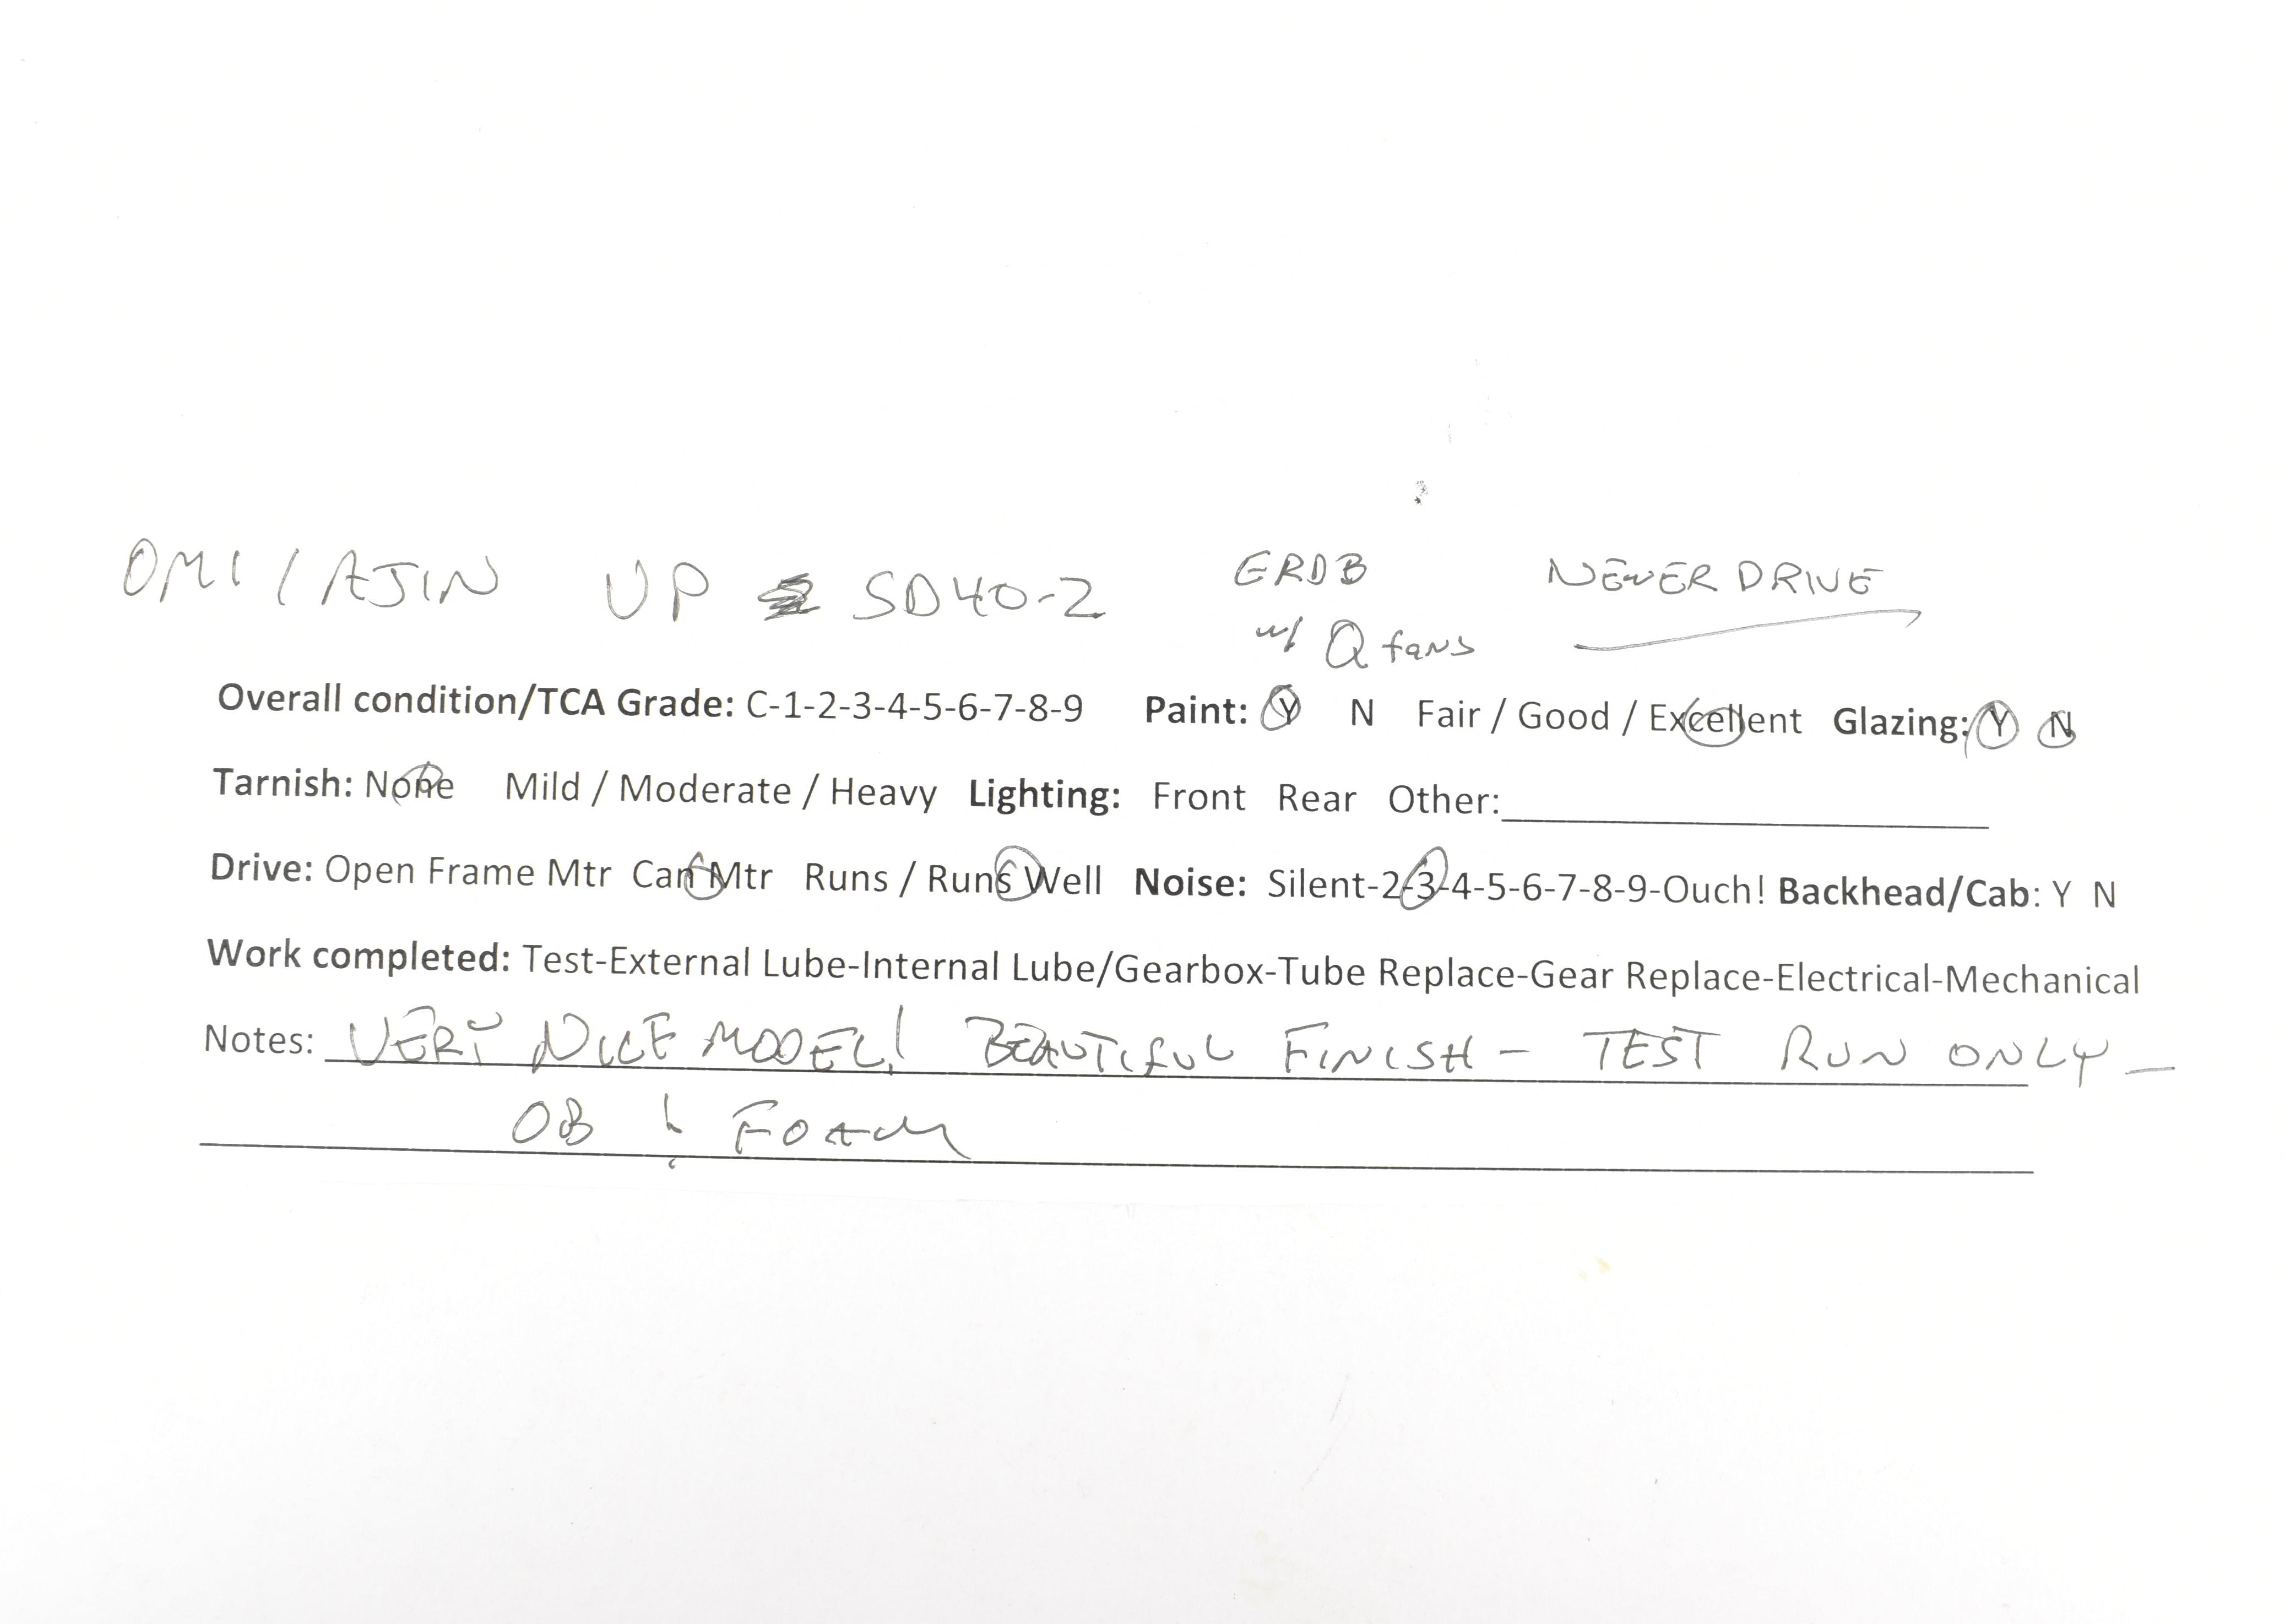 OMI / AJIN UP SD40-2 ERDB NEWER DRIVE
w/ Q fans
Overall condition/TCA Grade: C-1-2-3-4-5-6-7-8-9 Paint: Y N Fair / Good / Excellent Glazing: Y N
Tarnish: None Mild / Moderate / Heavy Lighting: Front Rear Other:
Drive: Open Frame Mtr Can Mtr Runs / Runs Well Noise: Silent-2-3-4-5-6-7-8-9-Ouch! Backhead/Cab: Y N
Work completed: Test-External Lube-Internal Lube/Gearbox-Tube Replace-Gear Replace-Electrical-Mechanical
Notes: VERY NICE MODEL! BEAUTIFUL FINISH - TEST RUN ONLY -
OB & FOAM